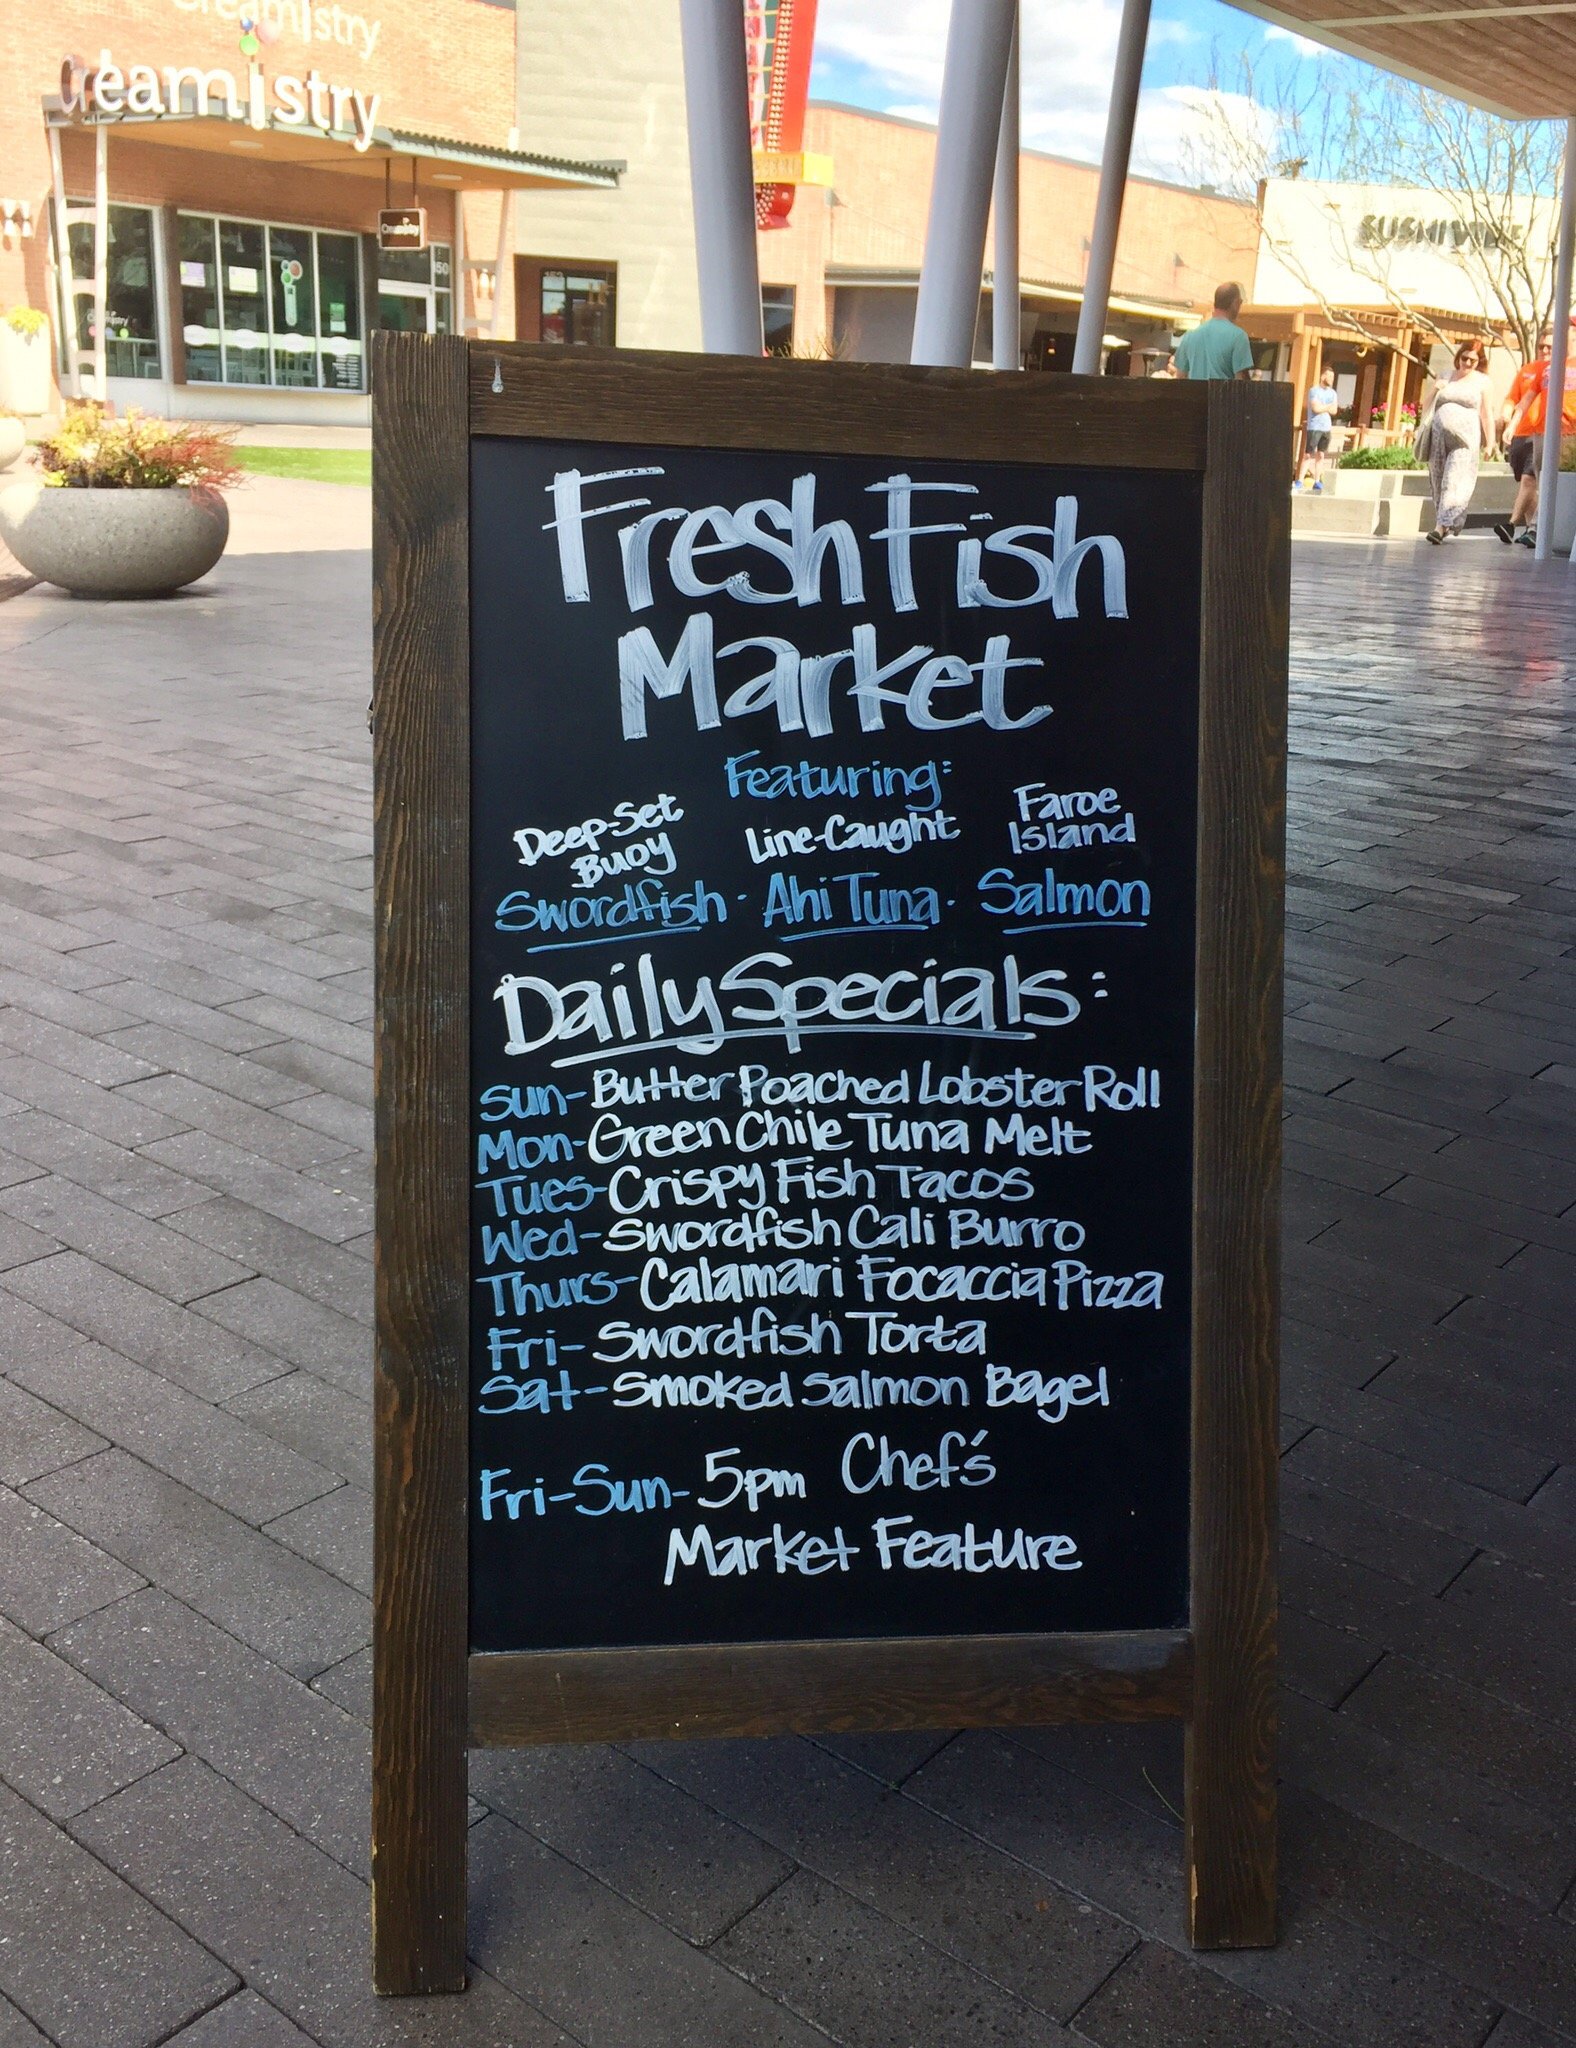 creamistry
creamistry
Creamistry
SUSHI
Fresh Fish
Market
Featuring:
Deep-Set
Buoy
Line-Caught
Faroe
Island
Swordfish · Ahi Tuna · Salmon
Daily Specials:
Sun- Butter Poached Lobster Roll
Mon- Green Chile Tuna Melt
Tues- Crispy Fish Tacos
Wed- Swordfish Cali Burro
Thurs- Calamari Focaccia Pizza
Fri- Swordfish Torta
Sat- Smoked Salmon Bagel
Fri-Sun- 5pm Chef's
Market Feature